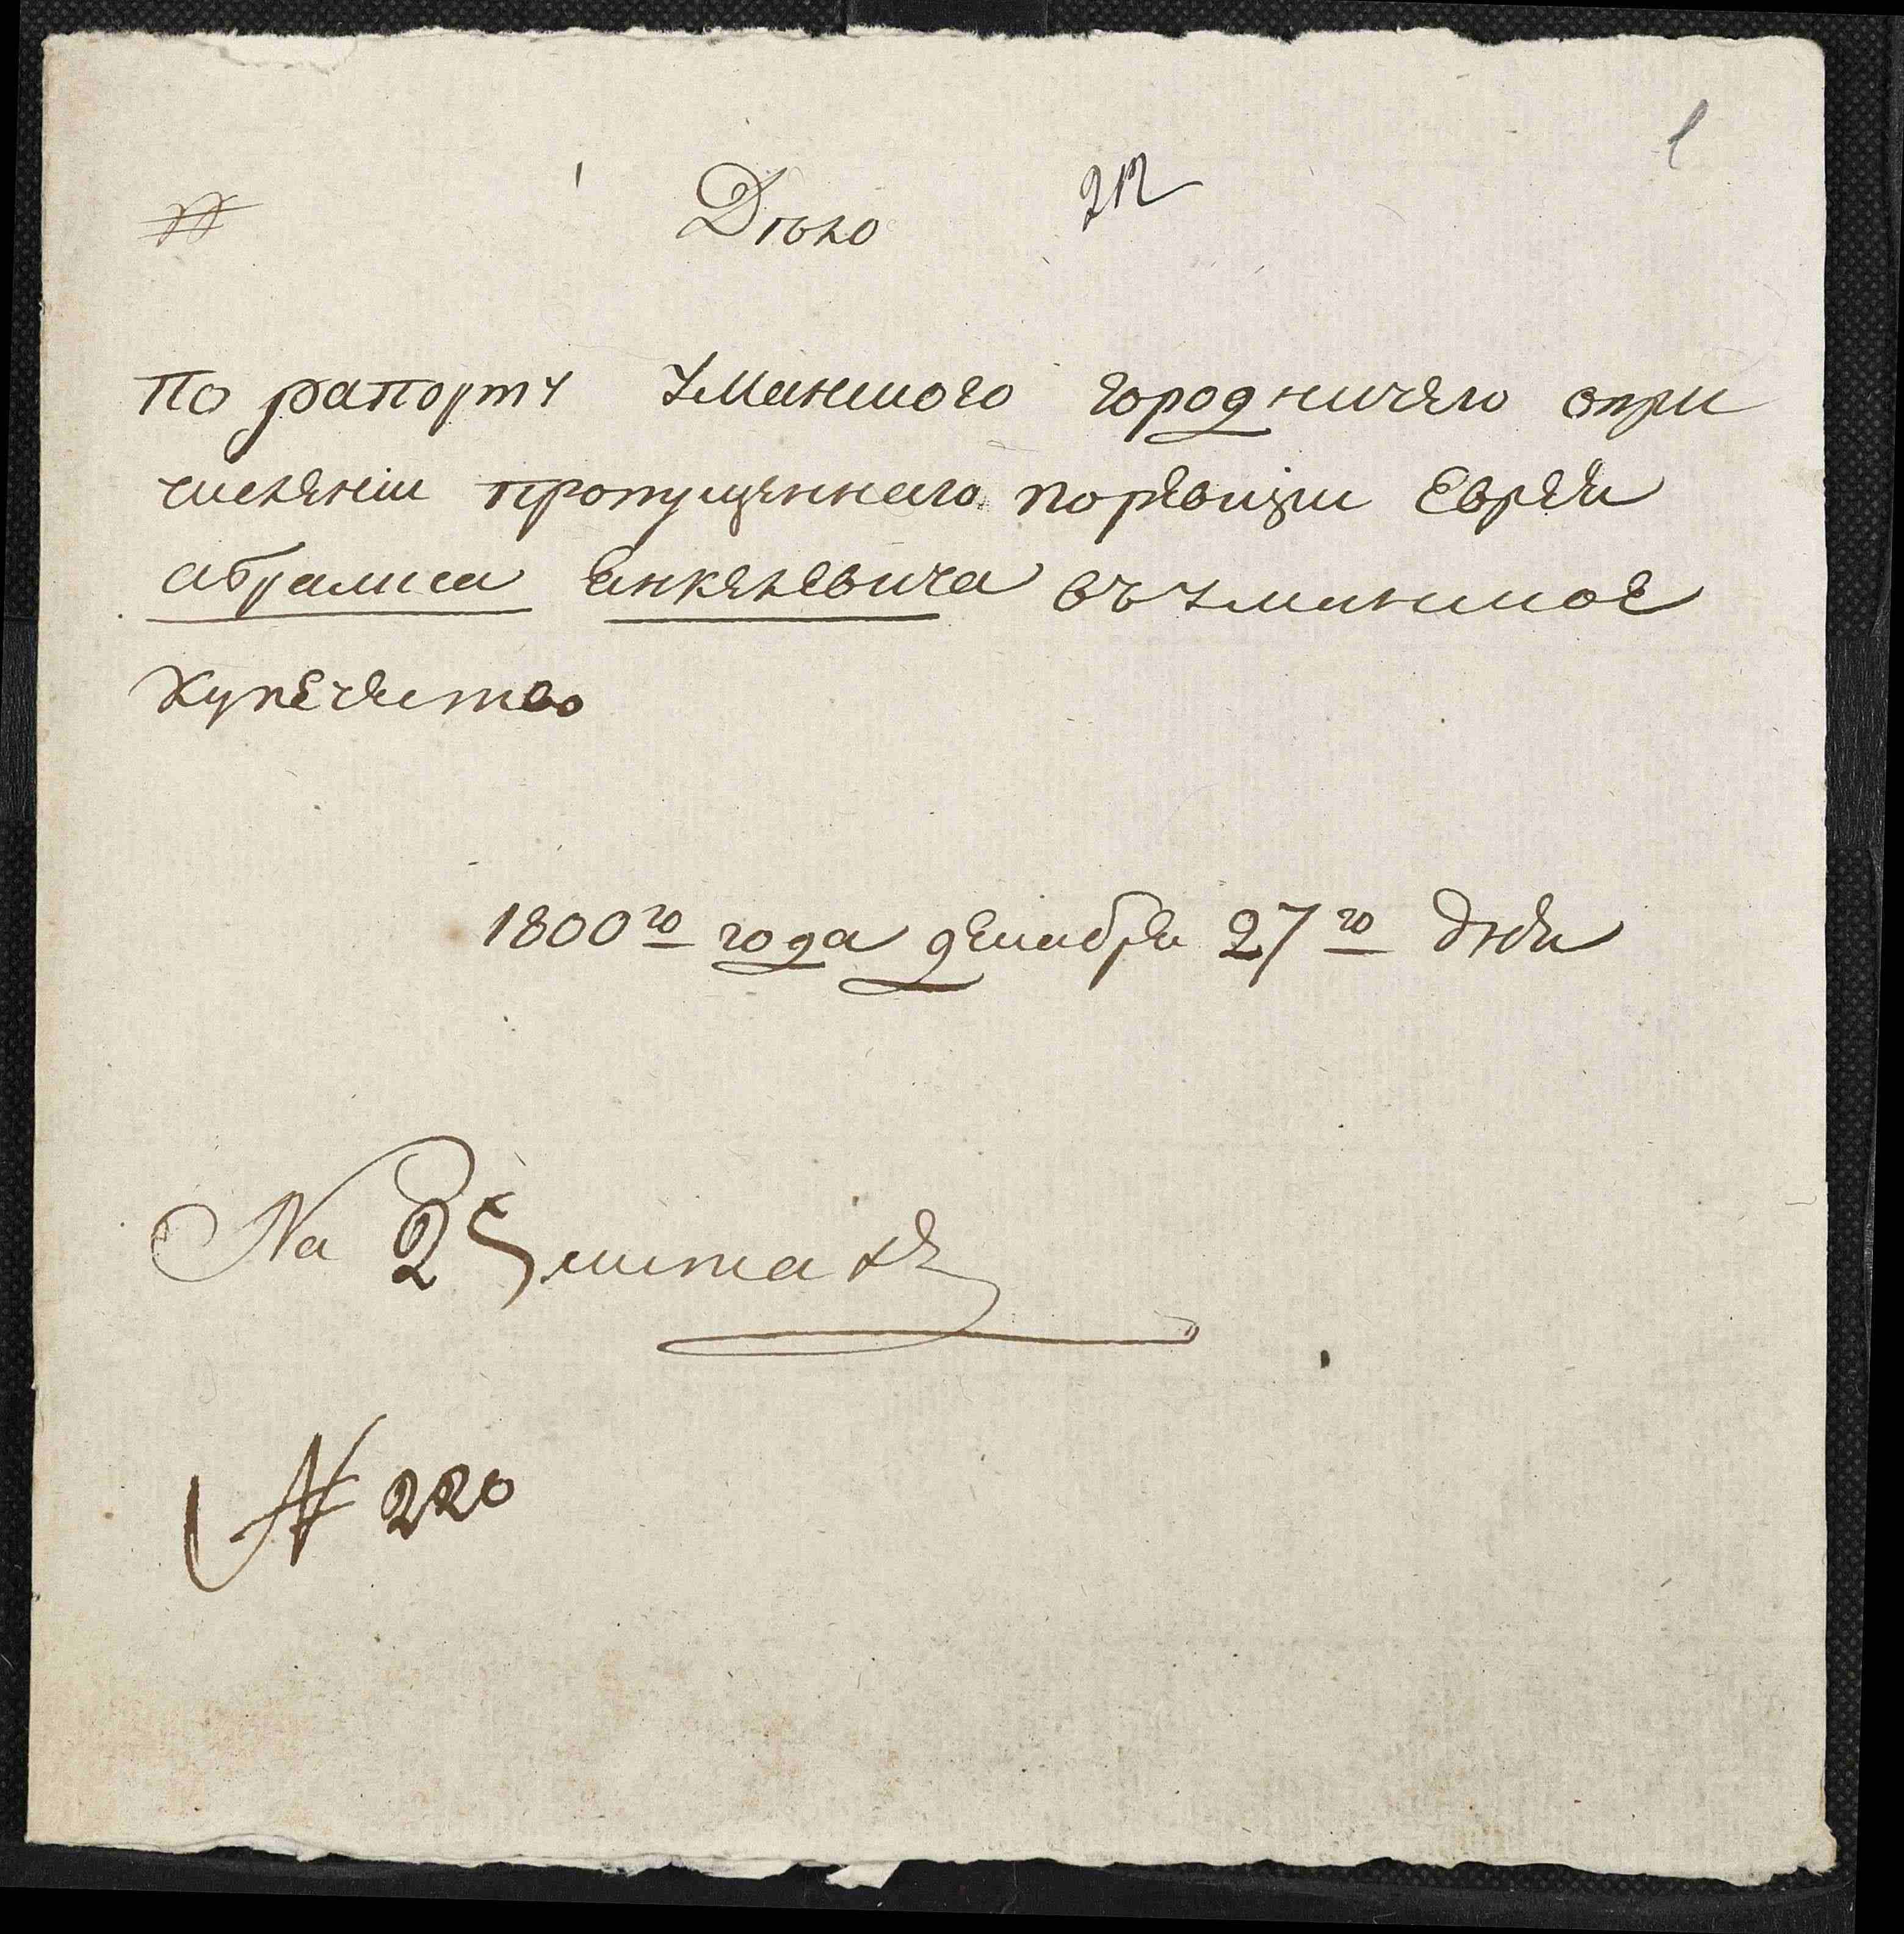 1
Дѣло 212
По рапорту Уманского городничего опри
числении пропущеннаго поревизи Еврея
абрамка Енкелевича въ уманское
купечество
1800го года декабря 27го дня
На 2х листахъ
№ 220